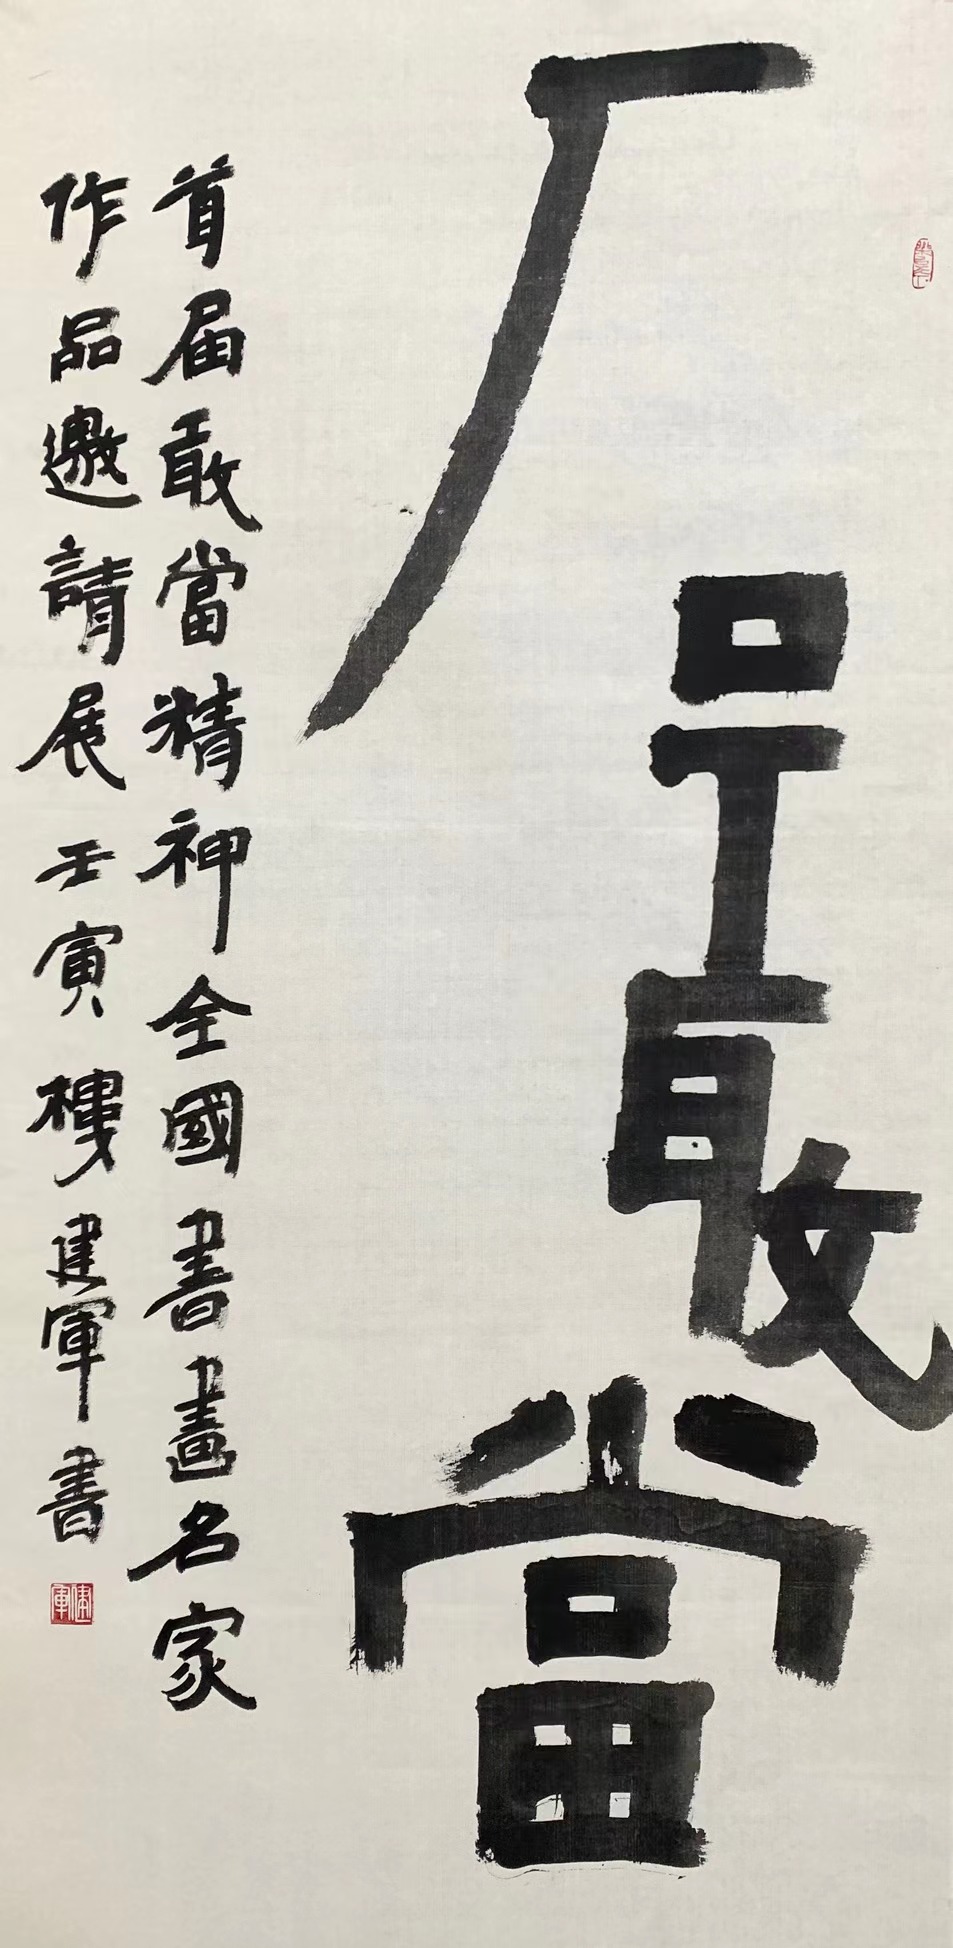 石敢當
首届敢當精神全國書畫名家
作品邀請展 壬寅 樓建軍書
建軍